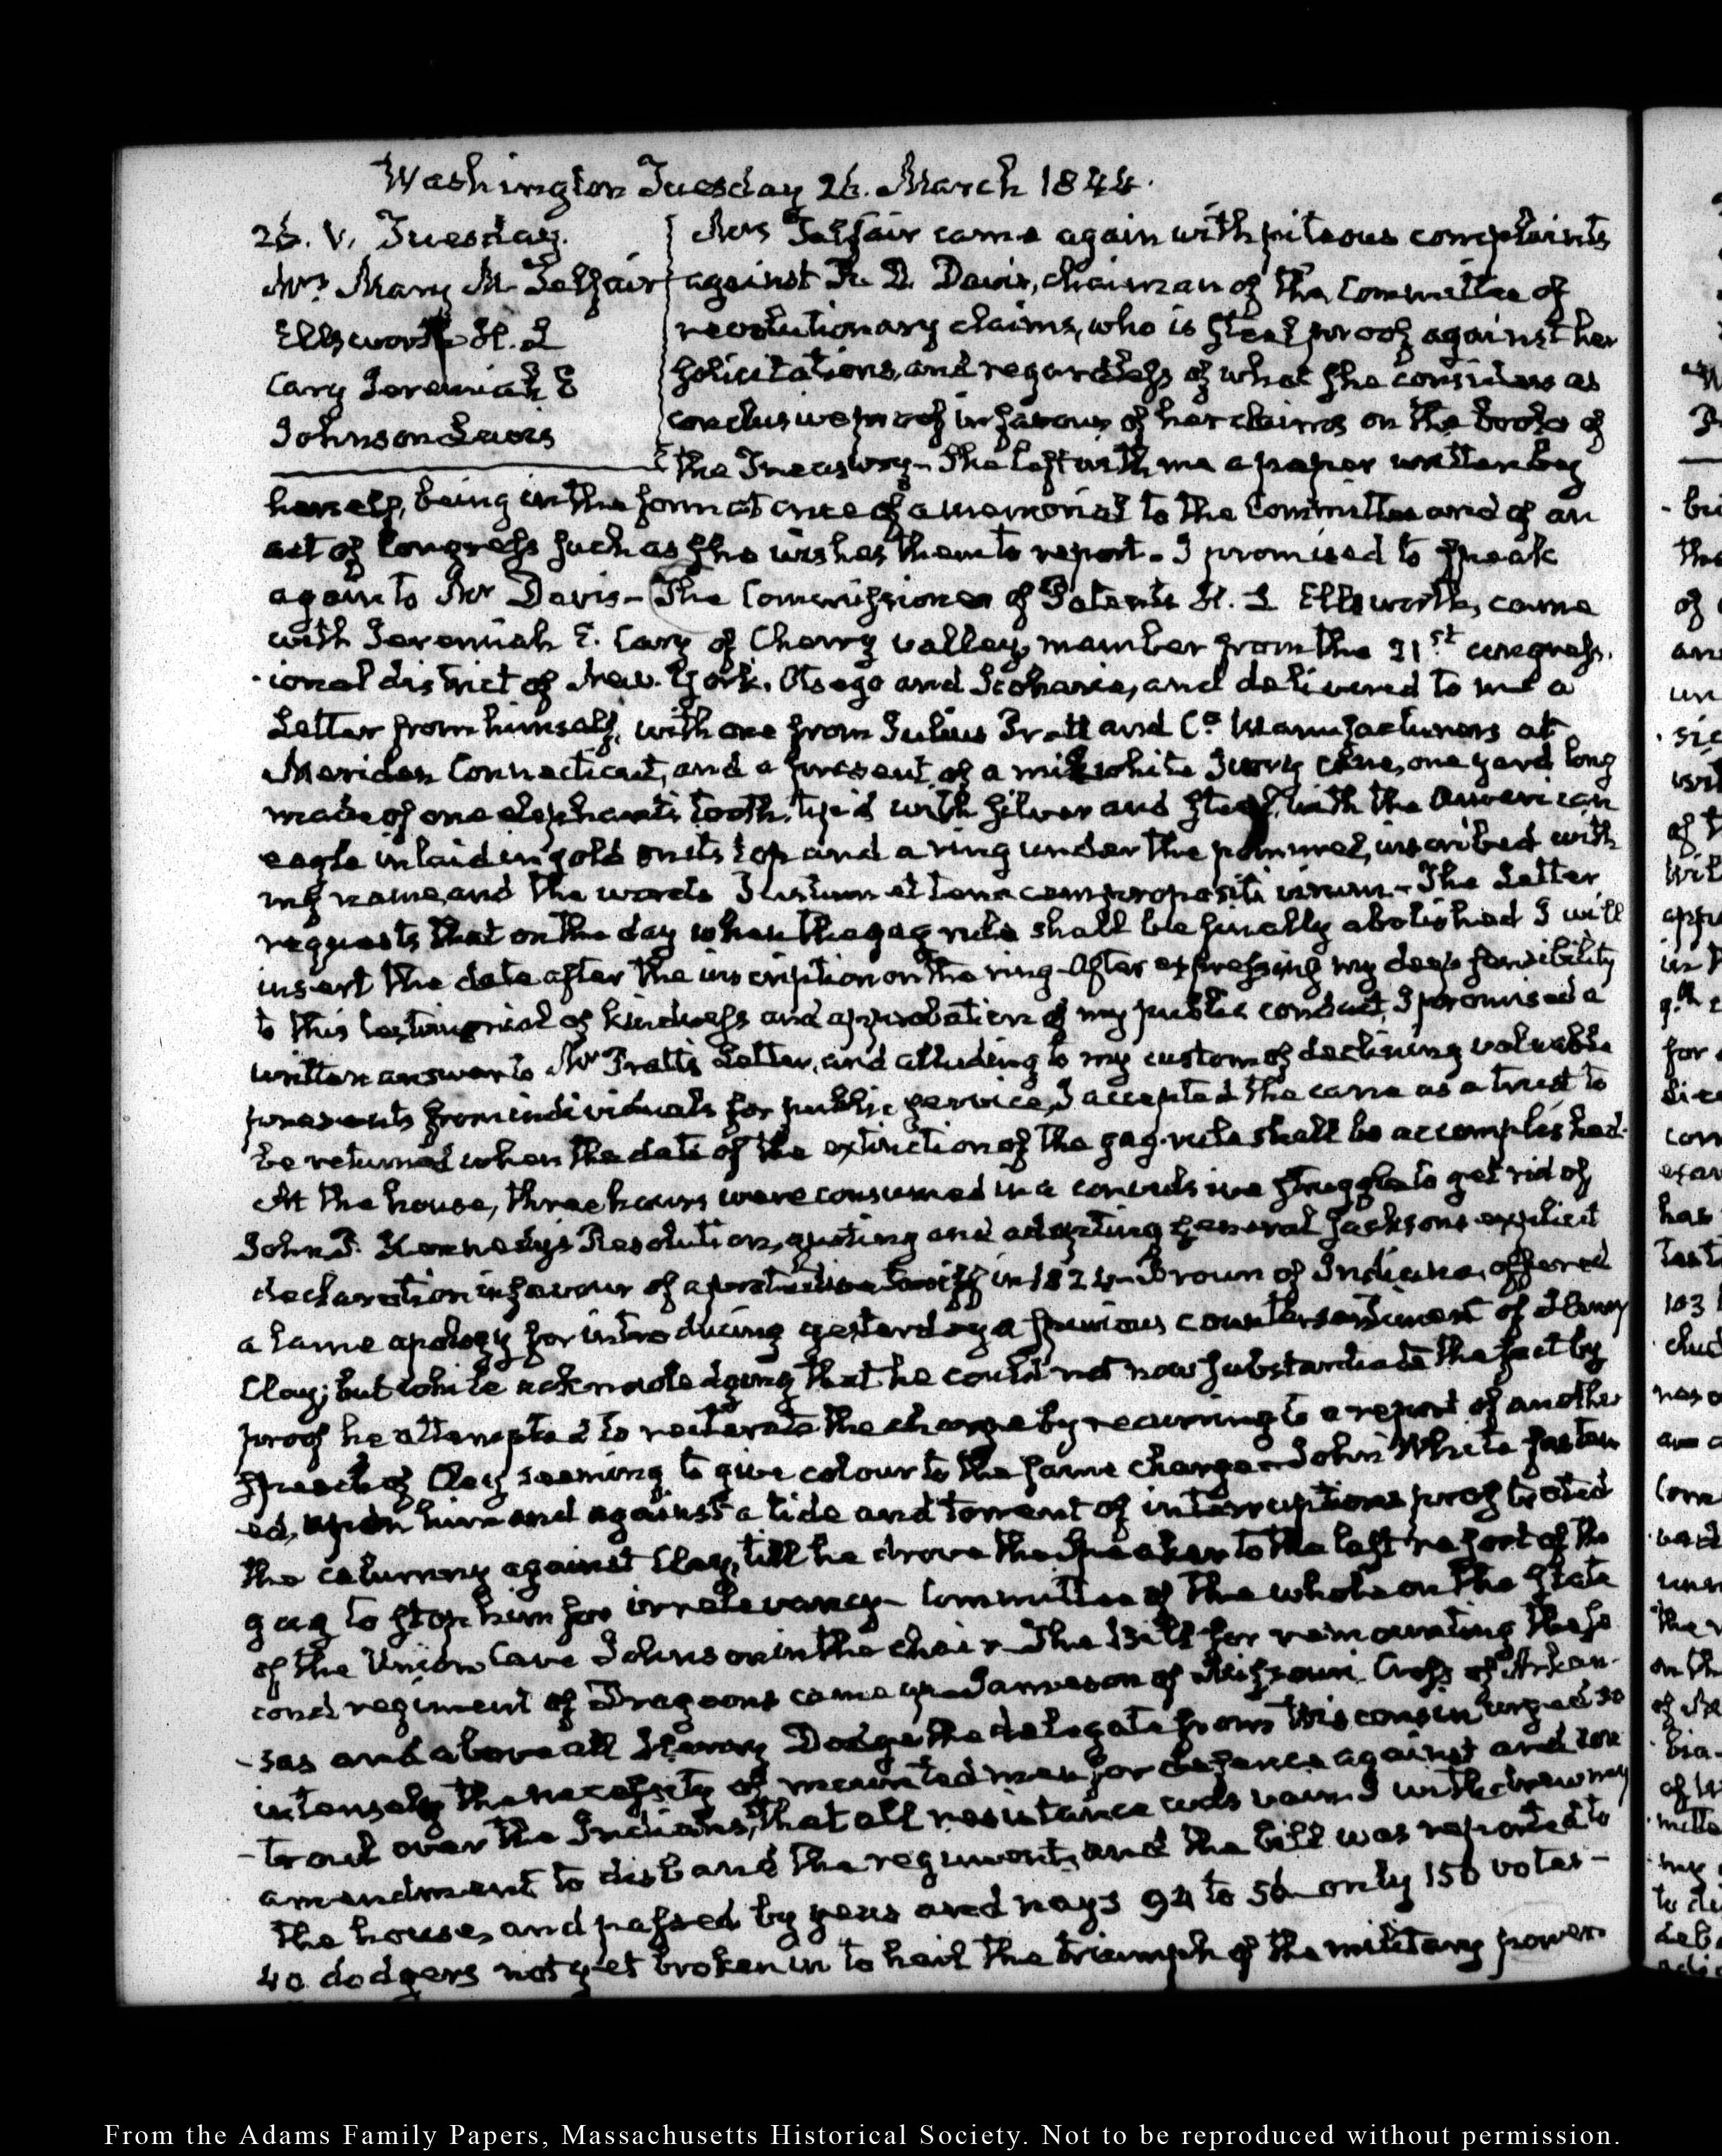 Washington Tuesday 26. March 1844.
26. V. Tuesday.
Mrs. Mary M. Telfair
Ellsworth H. L
Cary Jeremiah E
Johnson Lewis
Mrs Telfair came again with piteous complaints
against R. D. Davis, chairman of the Committee of
revolutionary claims, who is steel proof against her
solicitations, and regardless of what she considers as
conclusive proof in favour of her claims on the books of
the Treasury— She left with me a paper written by
herself, being in the form at once of a memorial to the Committee and of an
act of Congress such as she wishes them to report— I promised to speak
again to Mr Davis— The Commissioner of Patents H. L Ellsworth, came
with Jeremiah E. Cary of Cherry valley, member from the 21st. congress-
-ional district of New-York, Otsego and Scoharie, and delivered to me a
Letter from himself, with one from Julius Pratt and Co Manufacturers at
Meriden Connecticut, and a present of a milkwhite Ivory cane, one yard long
made of one elephant's tooth, tip'd with silver and steel, with the American
eagle inlaid in gold on its top and a ring under the pommel, inscribed with
my name, and the words Justum et tenacem propositi virum— The Letter
requests that on the day when the gag-rule shall be finally abolished I will
insert the date after the inscription on the ring— After expressing my deep sensibility
to this testimonial of kindness and approbation of my public conduct, I promised a
written answer to Mr Pratts Letter, and alluding to my custom of declining valuable
presents from individuals for public service, I accepted the cane as a trust to
be returned when the date of the extinction of the gag-rule shall be accomplished.
At the house, three hours were consumed in a convulsive struggle to get rid of
John P. Kennedy's Resolution, quoting and adopting general Jacksons explicit
declaration in favour of a protective Tariff in 1824— Brown of Indiana, offered
a lame apology for introducing yesterday a spurious counter sentiment of Henry
Clay; but while acknowledging that he could not now substantiate the fact by
proof he attempted to reiterate the charge by recurring to a report of another
speech of Clay seeming to give colour to the same charge— John White fasten
-ed, upon him and against a tide and torrent of interruptions prostrated
the calumny against Clay, till he drove the Speaker to the last resort of the
gag to stop him for irrelevancy— Committee of the whole on the state
of the Union Cave Johnson in the chair— The Bill for remounting the se
cond regiment of Dragoons came up— Jameson of Missouri Cross of Arkan-
-sas and above all Henry Dodge the delegate from Wisconsin urged so
intensely the necessity of mounted men for defence against and con
-troul over the Indians, that all resistance was vain. I withdrew my
amendment to disband the regiment, and the bill was reported to
the house, and passed by yeas and nays 94 to 56 only 150 votes—
40 dodgers not yet broken in to hail the triumph of the military power.
From the Adams Family Papers, Massachusetts Historical Society. Not to be reproduced without permission.